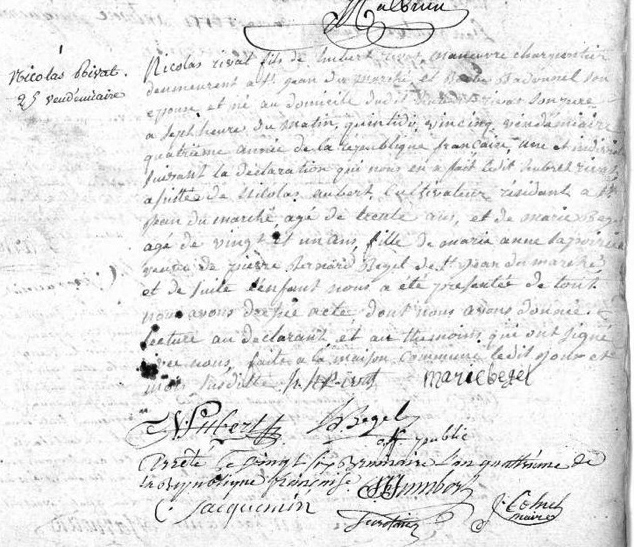 Nicolas Rivat.
25 vendémiaire
Nicolas rivat fils de humbert rivat manœuvre charpentier
demeurant a St jean du marché, et son
epouse et né au domicile dudit rivat son pere
a sept heure du matin, quintidi, vincinq vendémiaire
quatrième année de la république française, une et indivisi
suivant la déclaration qui nous en a fait ledit humbert rivat
assisté de Nicolas aubert, Cultivateur résidant a St
jean du marché agé de trente ans, et de marie Begel
agé de vingt et un ans, fille de maria anne
veuve de pierre bernard Begel de St jean du marché
et de suite l'enfant nous a été présentée de tout
nous avons dressé acte dont nous avons donnée
lecture au déclarant et au themoins qui ont signé
avec nous, fait a la maison commune ledit jour et
mois susditte marie begel
Begel
public
Arrêté le vingt six Brumaire l'an quatrième de
la République française
C. Jacquemin
Secrétaire
maire